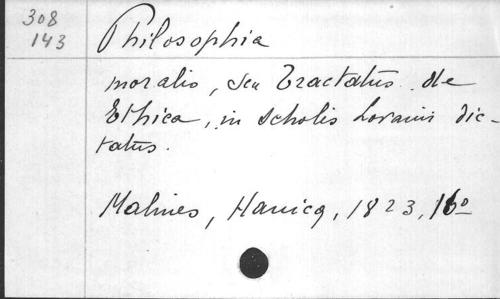 308
143
Philosophia
moralis, seu Tractatus de
Ethica, in scholis Lovanii dic-
tatus.
Malines, Hanicq, 1823, 16°